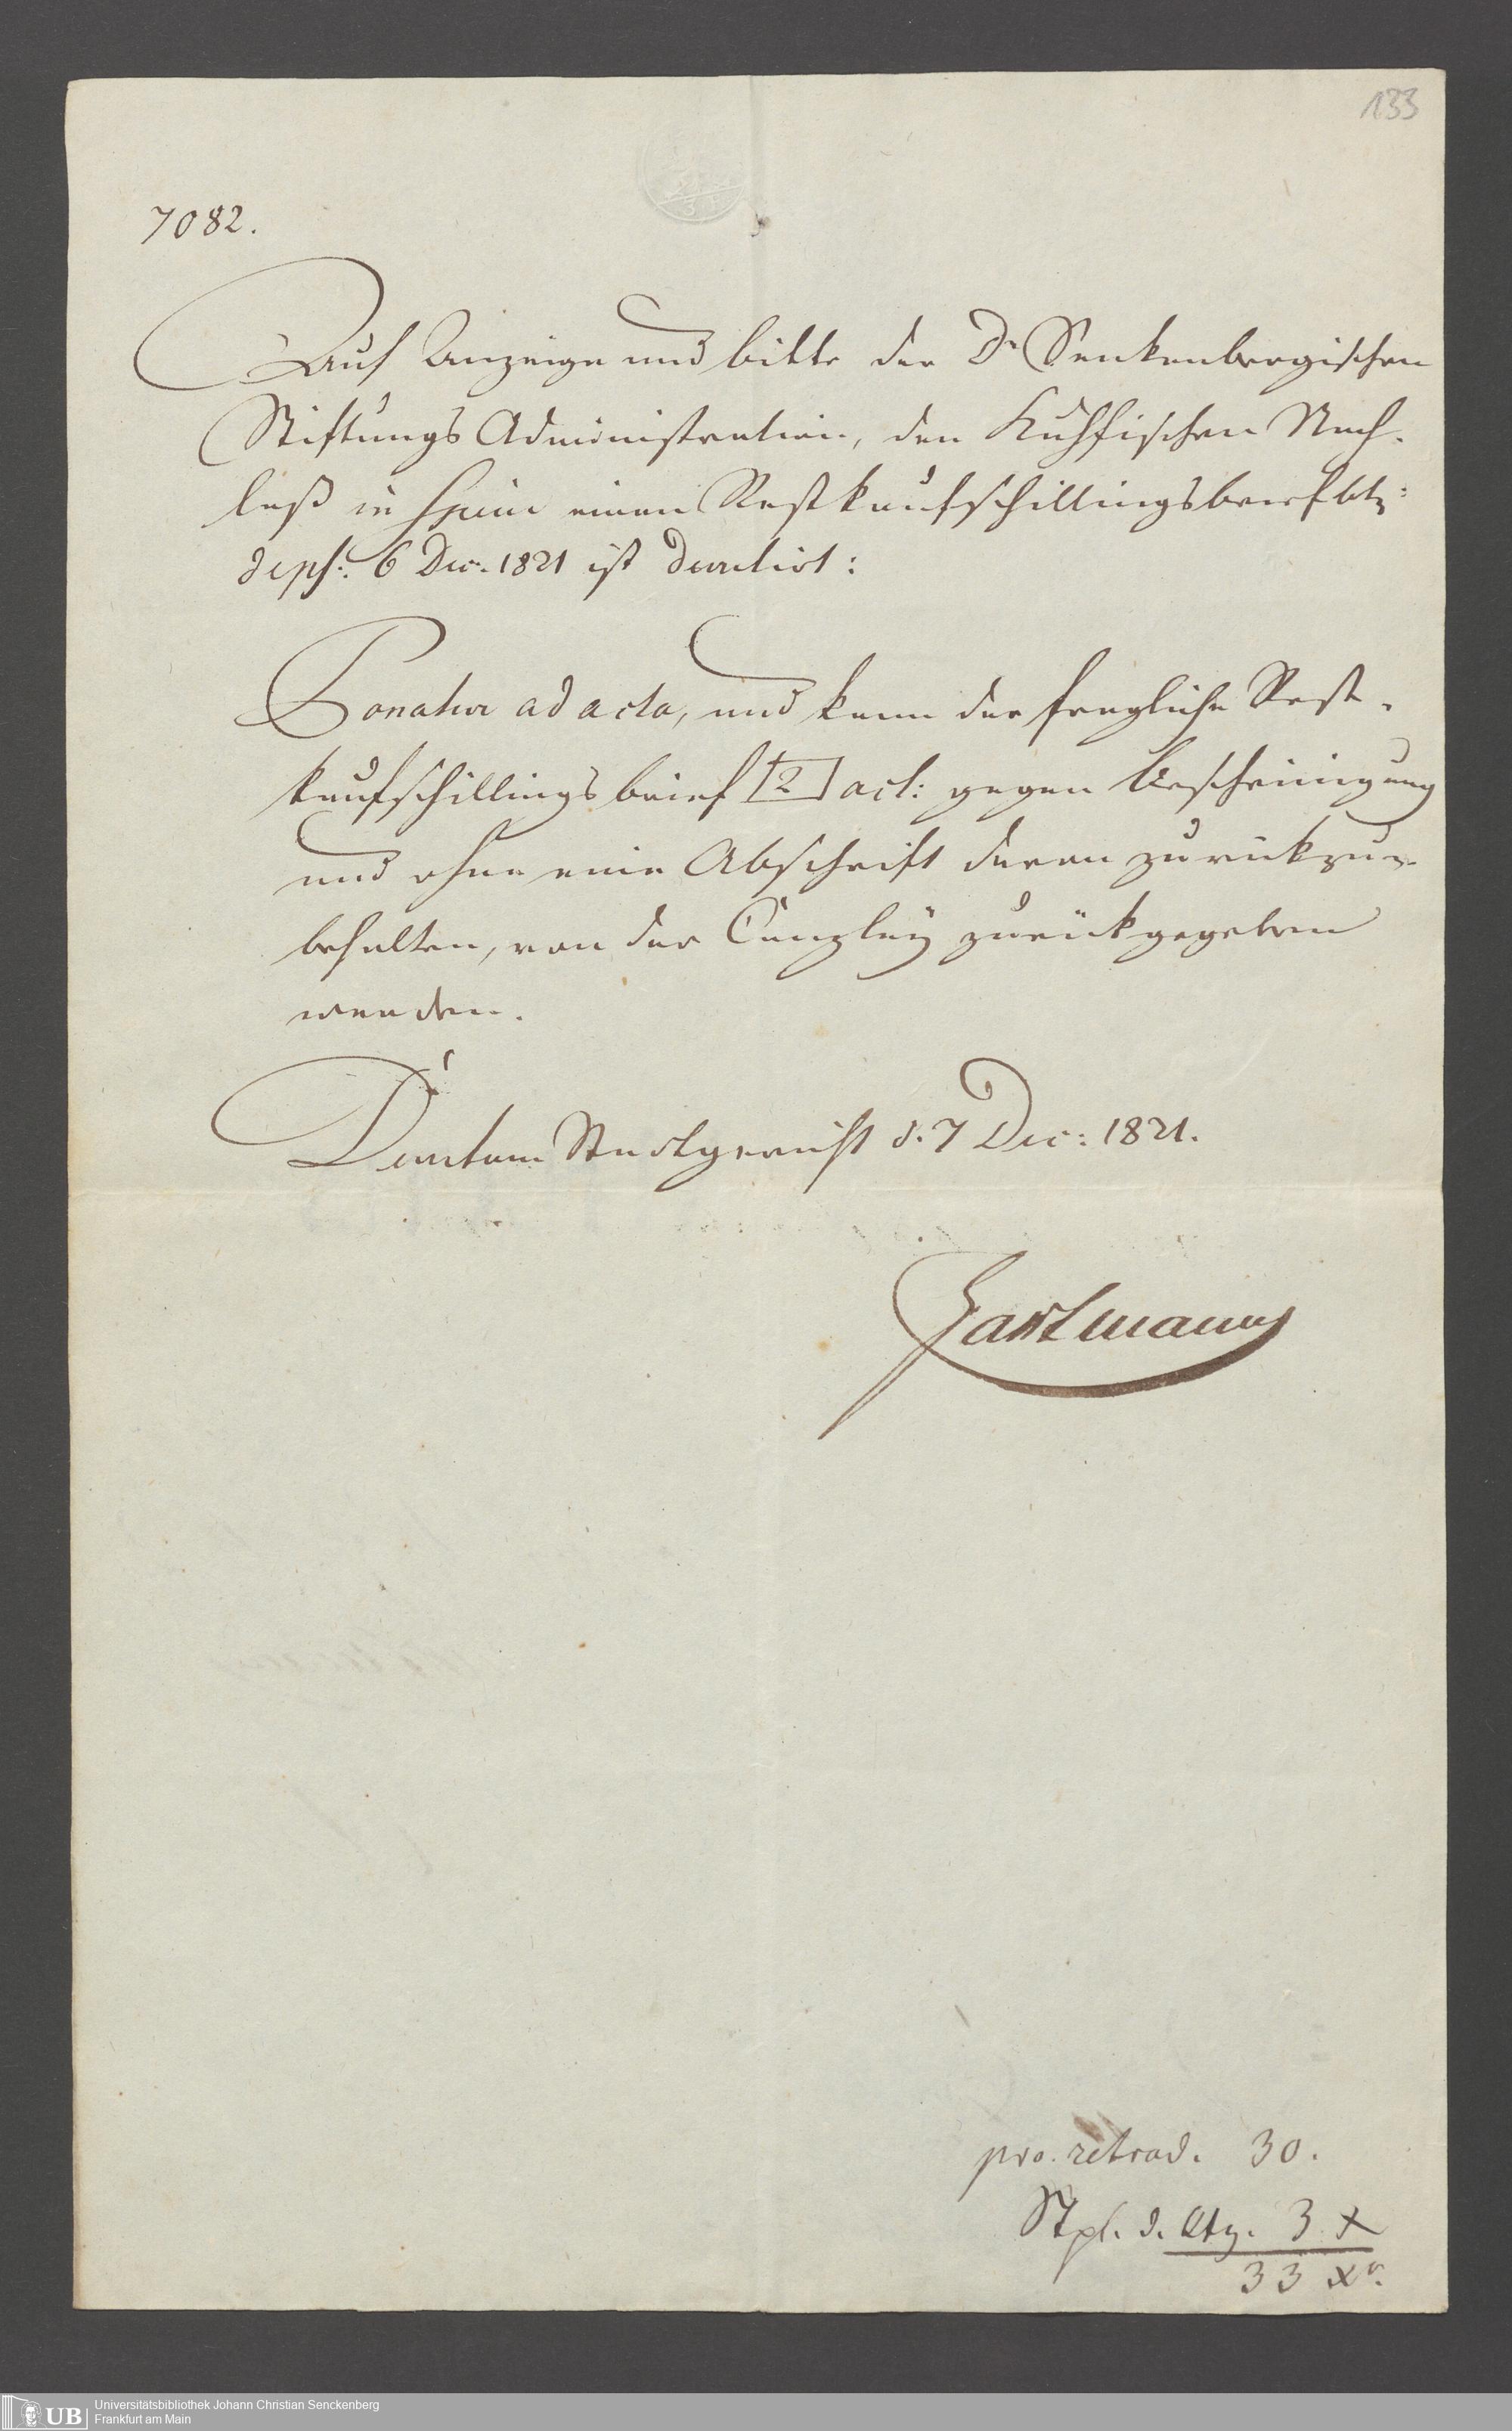 133
7082.
Auf Anzeige und bitte der Dr Senkenbergischen
Stiftungs Administration, den Nach-
laß in einen Restkaufschillingsbrief btr:
6 Dec. 1821 ist decretirt:
Ponatur ad acta, und kann der fragliche Rest-
kaufschillingsbrief [2] act: gegen Bescheinigung
und ohne eine Abschrift davon zurückzu-
behalten, von der Canzley zurückgegeben
werden.
Decretum Stadtgericht d. 7 Dec: 1821.
Hartmann
pro. retrad. 30.
Stpl. d. Qtg. 3 x
33 xr.
UB Universitätsbibliothek Johann Christian Senckenberg
Frankfurt am Main